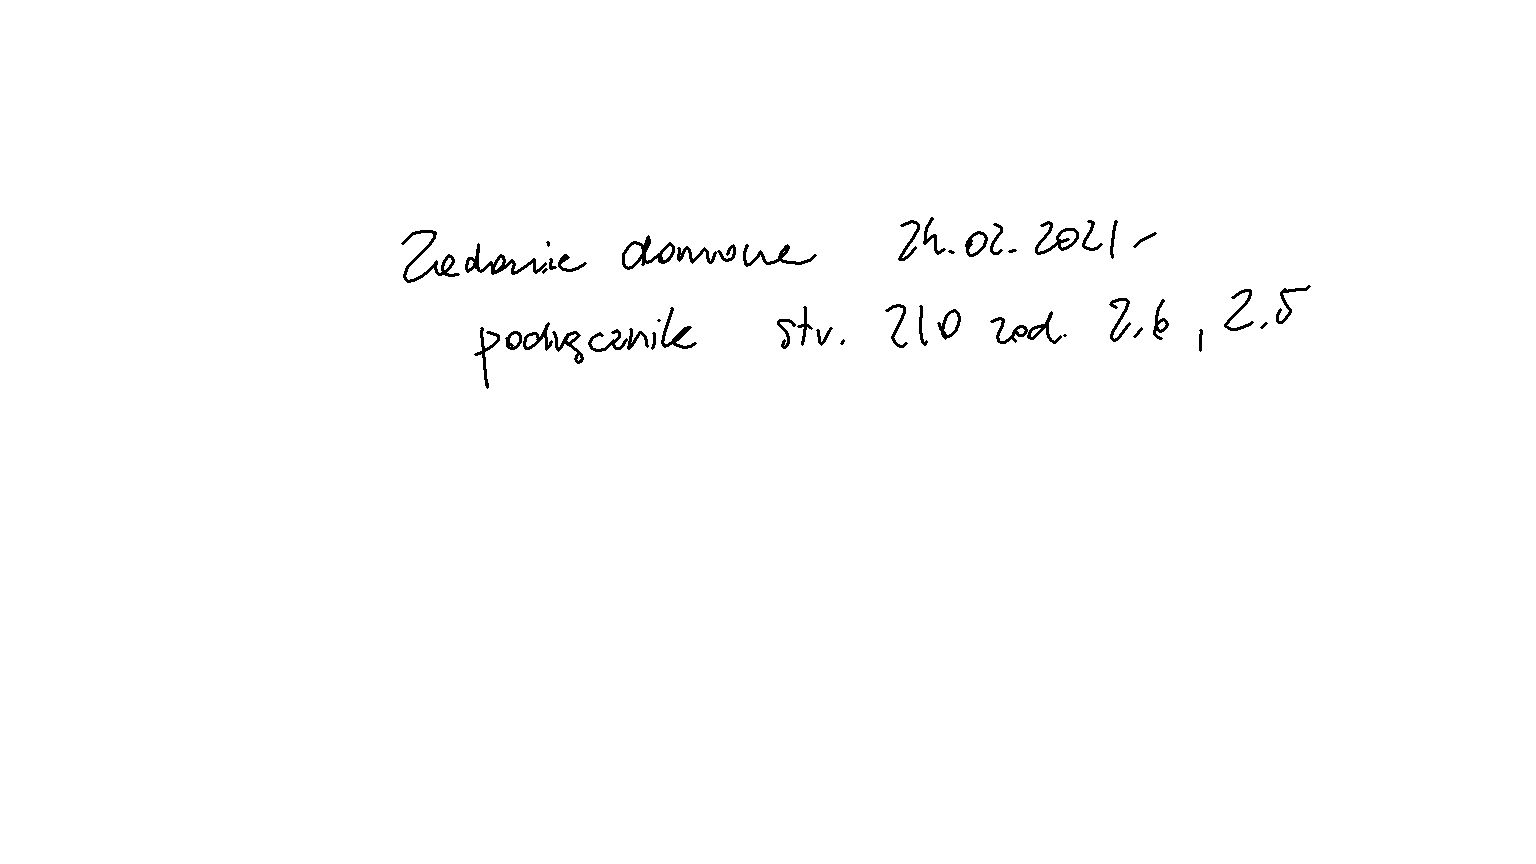 Zadanie domowe 24.02.2021r
podręcznik str. 210 zad. 2.6, 2.5